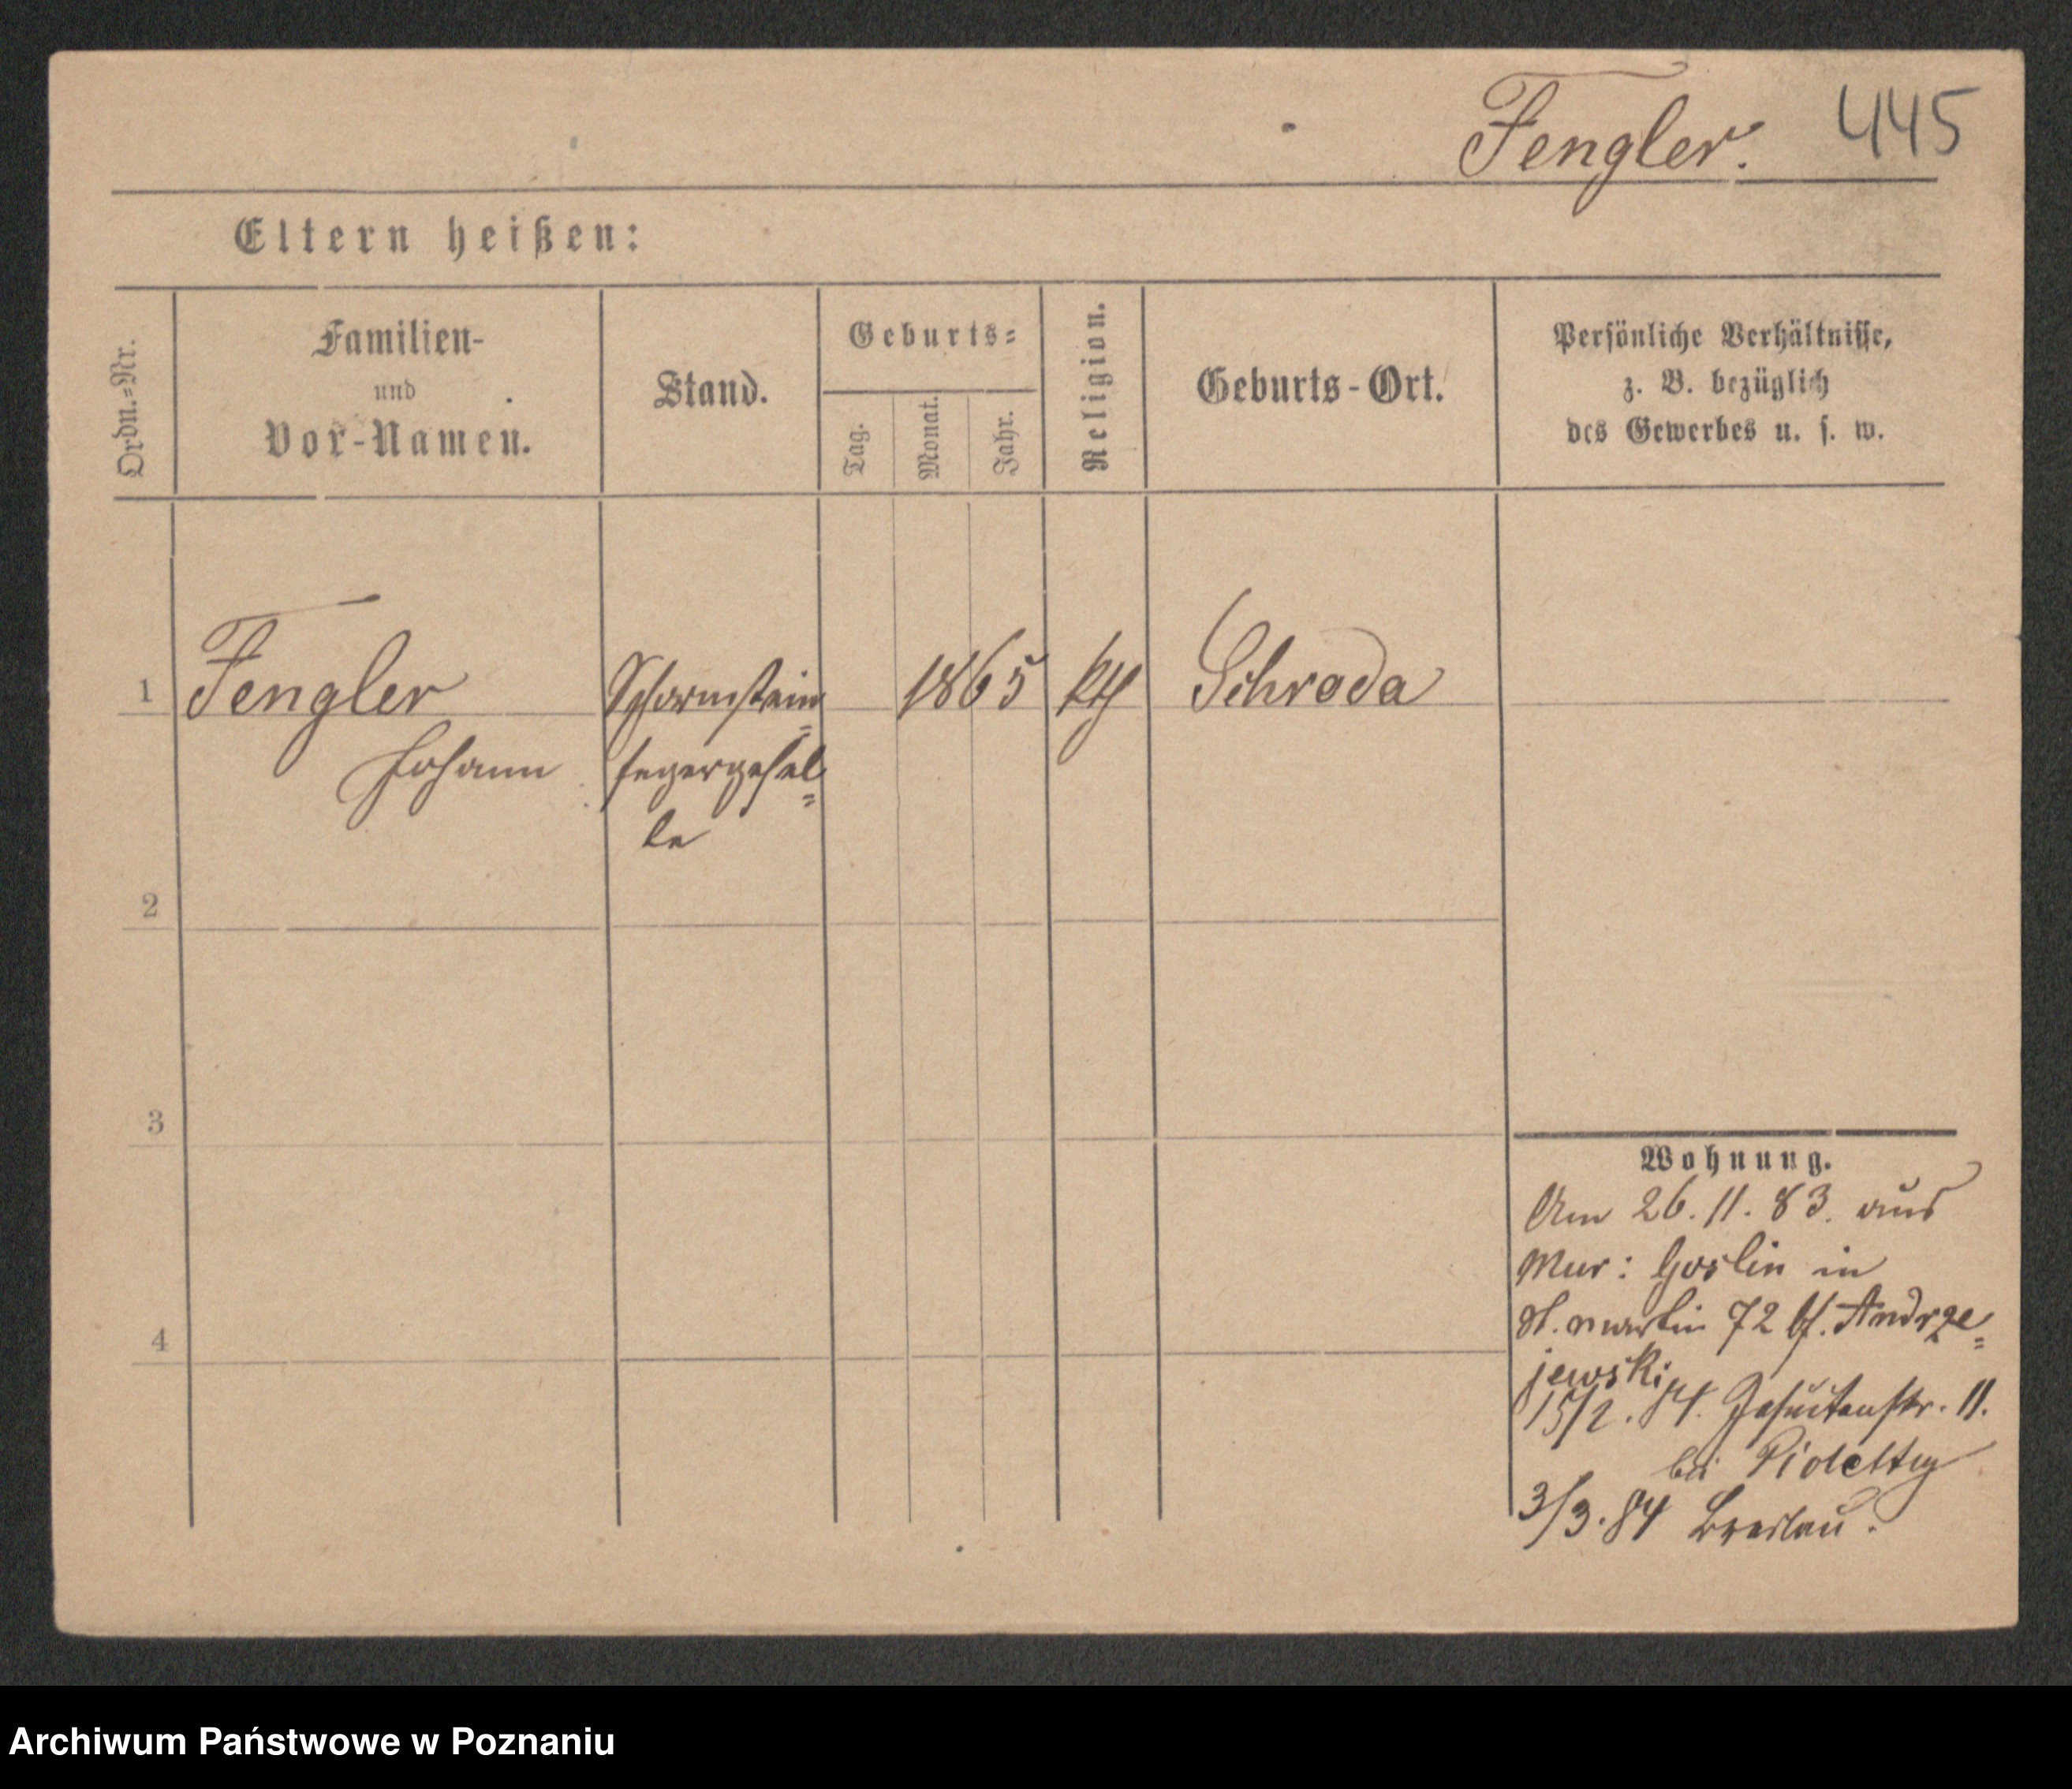 Fengler. 445
Eltern heißen:
Ordn.=Nr.
Familien-
und
Vor-Namen.
Stand.
Geburts=
Tag.
Monat.
Jahr.
Religion.
Geburts-Ort.
Persönliche Verhältnisse,
z. B. bezüglich
des Gewerbes u. s. w.
1 Fengler Schornstein= 1865 kth Schroda
Johann fegergesel=
le
2
3
4
Wohnung.
Am 26.11.83. aus
Mur: Goslin in
St. Martin 72 bf. Andrze=
jewski
15/2.84. Jesuitenstr. 11.
bei
3/3.84 Breslau.
Archiwum Państwowe w Poznaniu